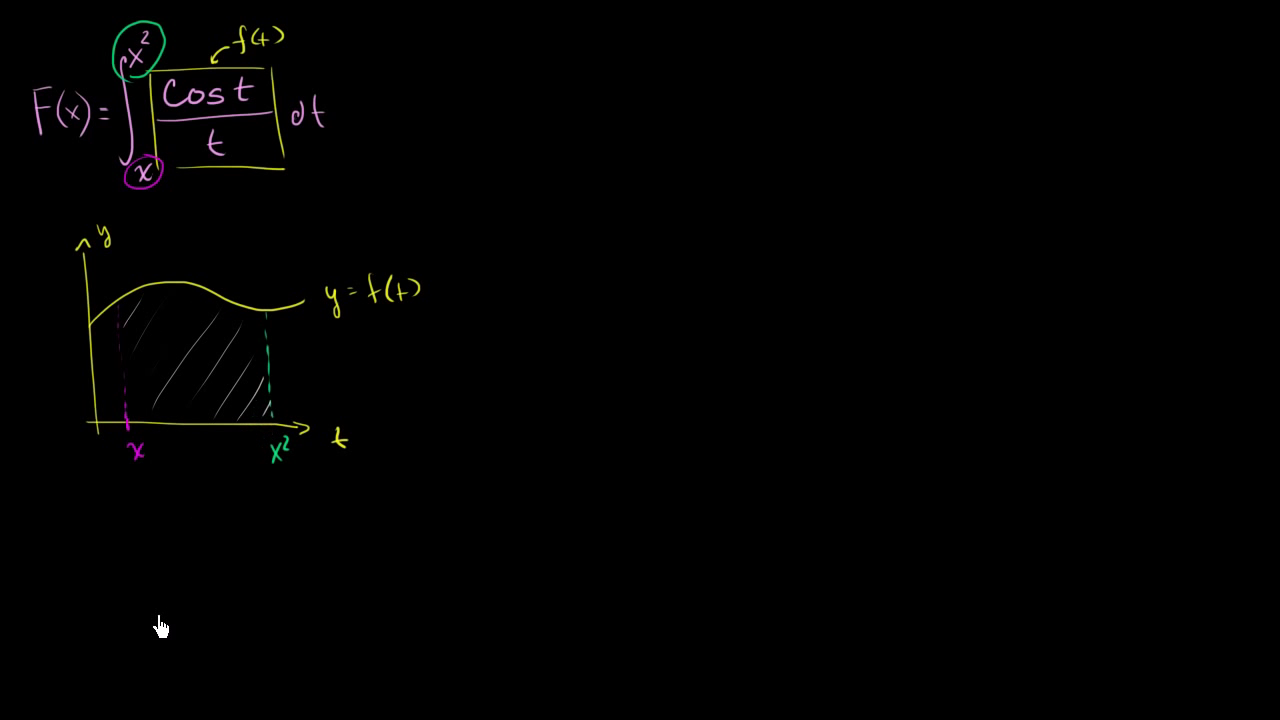 F(x) = ∫ₓ^(x²) cos t / t dt
f(t)
y
y = f(t)
x
x²
t